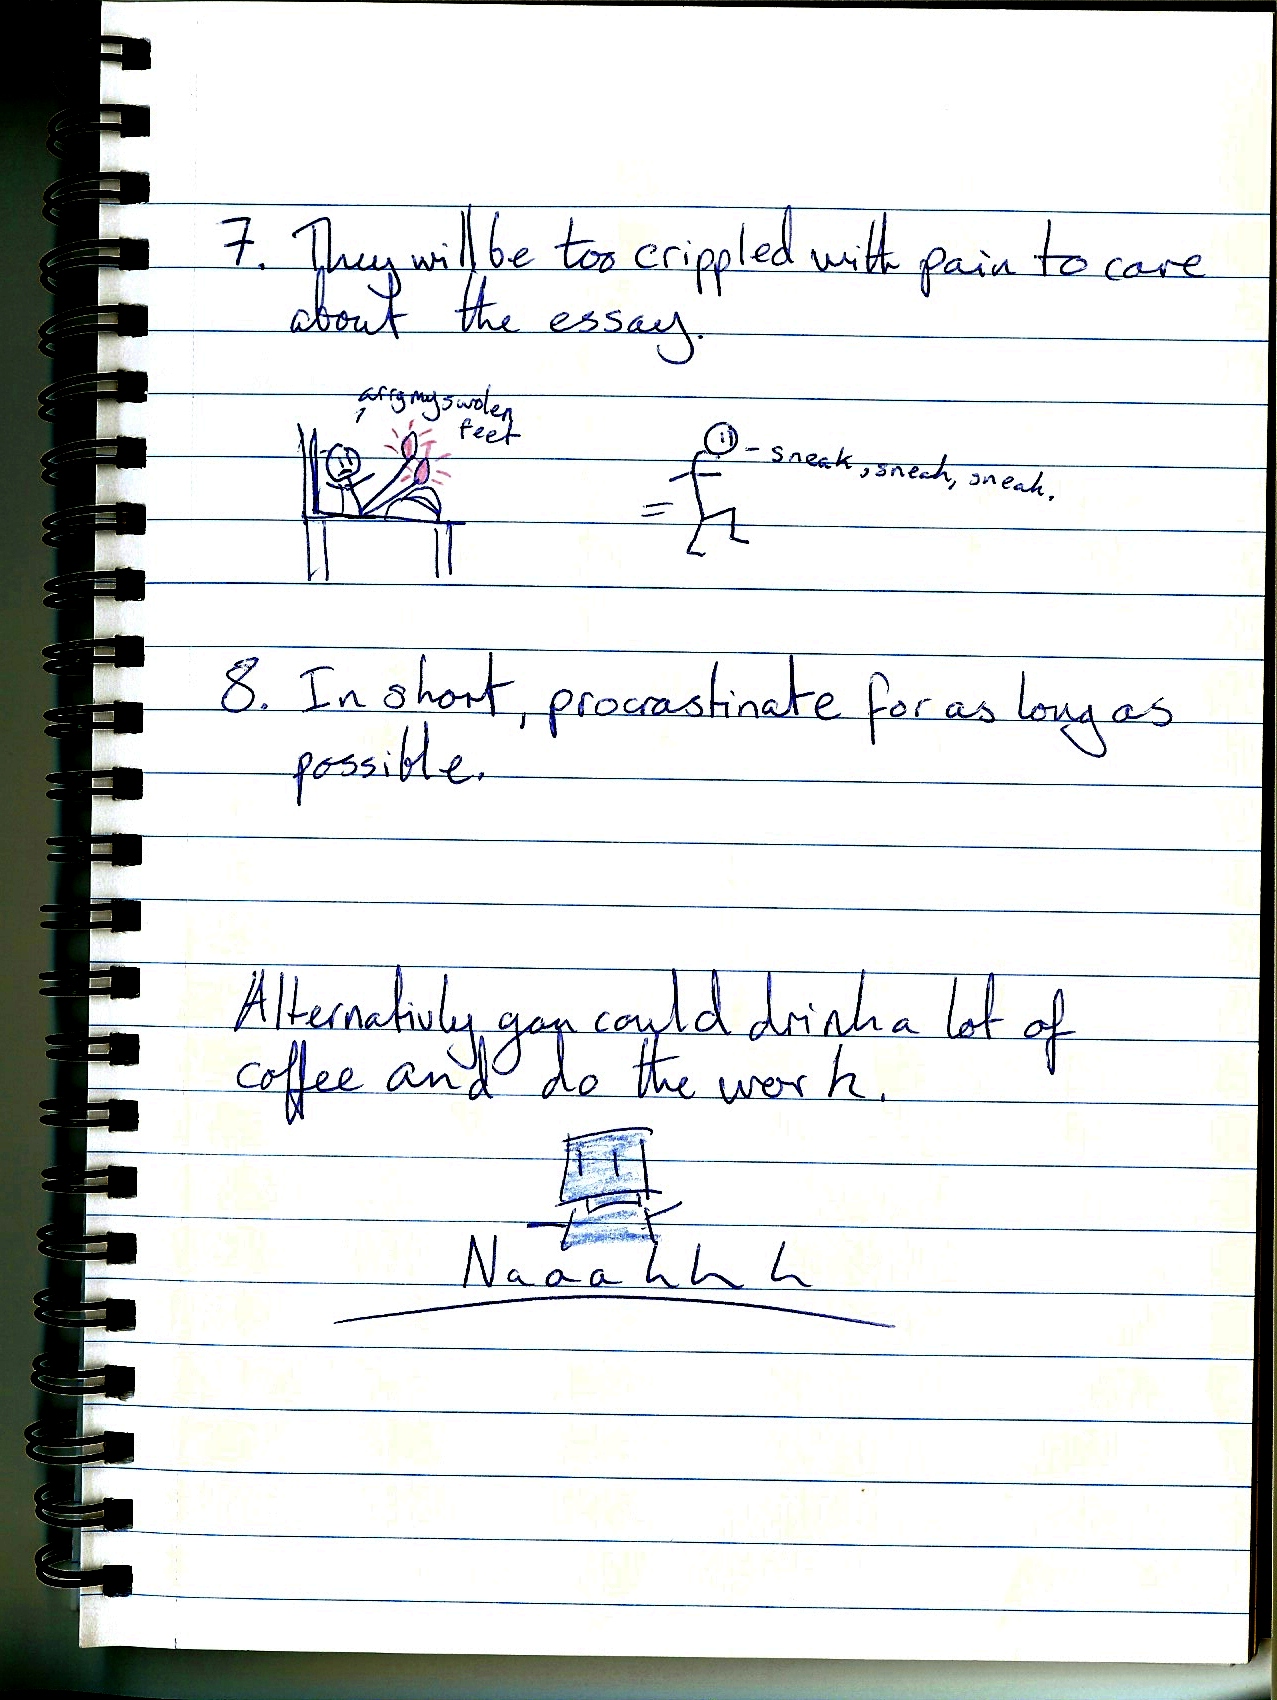 7. They will be too crippled with pain to care
about the essay.
arrg my swolen
feet
- sneak, sneak, sneak.
8. In short, procrastinate for as long as
possible.
Alternativly you could drink a lot of
coffee and do the work.
Naaahhh